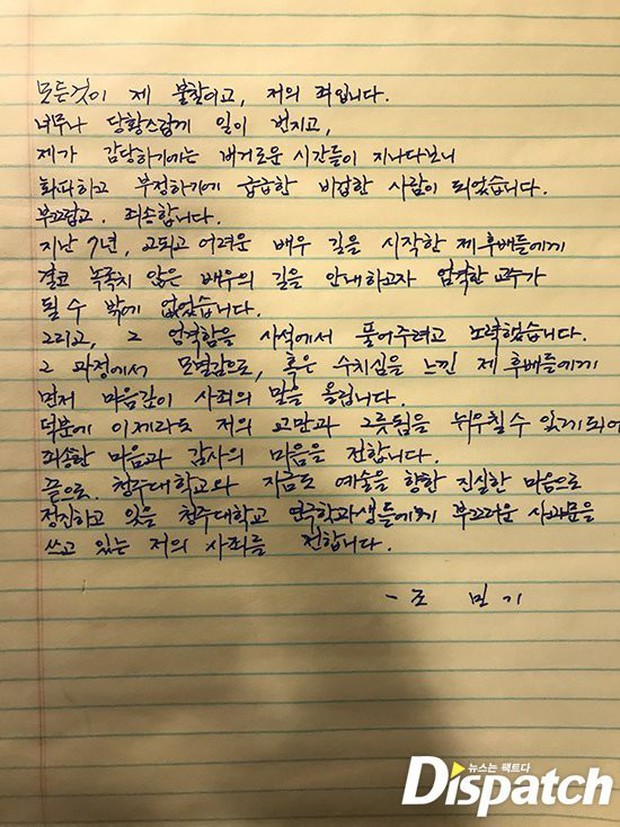 모든것이 제 불찰이고, 저의 죄입니다.
너무나 당황스럽게 일이 번지고,
제가 감당하기에는 버거로운 시간들이 지나다보니
회피하고 부정하기에 급급한 비겁한 사람이 되었습니다.
부끄럽고. 죄송합니다.
지난 7년, 고되고 어려운 배우 길을 시작한 제후배들에게
결코 녹록치 않은 배우의 길을 안내하고자 엄격한 교수가
될 수 밖에 없었습니다.
그리고, 그 엄격함을 사석에서 풀어주려고 노력했습니다.
그 과정에서 모멸감으로, 혹은 수치심을 느낀 제 후배들에게
먼저 마음깊이 사죄의 말을 올립니다.
덕분에 이제라도 저의 교만과 그릇됨을 뉘우칠 수 있게되어
죄송한 마음과 감사의 마음을 전합니다.
끝으로. 청주대학교와 지금도 예술을 향한 진실한 마음으로
정진하고 있을 청주대학교 연극학과생들에게 부끄러운 사과문을
쓰고 있는 저의 사죄를 전합니다.
- 조 민 기
뉴스는 팩트다
Dispatch